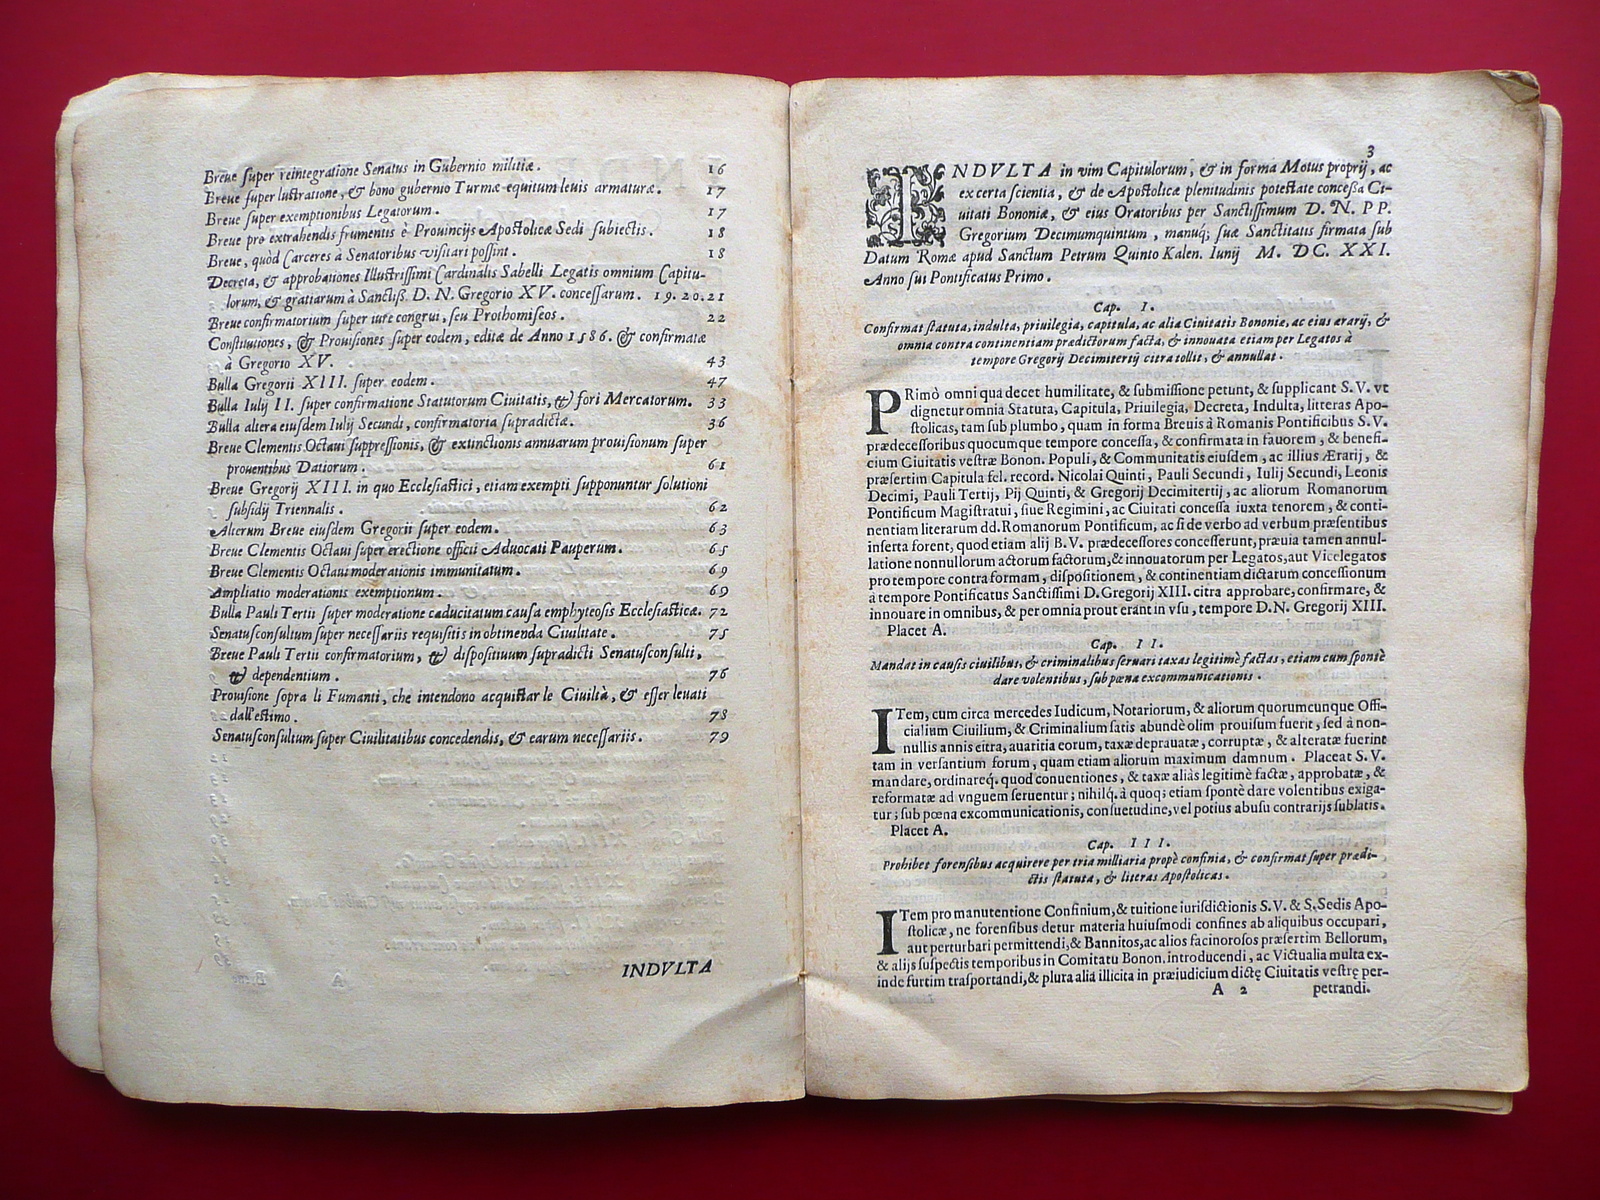 Breue super reintegratione Senatus in Gubernio militiæ. 16
Breue super lustratione, & bono gubernio Turmæ equitum leuis armaturæ. 17
Breue super exemptionibus Legatorum. 17
Breue pro extrahendis frumentis è Prouincijs Apostolicæ Sedi subiectis. 18
Breue, quòd Carceres à Senatoribus visitari possint. 18
Decreta, & approbationes Illustrissimi Cardinalis Sabelli Legatis omnium Capitu-
lorum, & gratiarum à Sanctiss. D. N. Gregorio XV. concessarum. 19. 20. 21
Breue confirmatorium super iure congrui, seu Prothomiseos. 22
Constitutiones, & Prouisiones super eodem, editæ de Anno 1586. & confirmatæ
à Gregorio XV. 43
Bulla Gregorii XIII. super eodem. 47
Bulla Iulij II. super confirmatione Statutorum Ciuitatis, & fori Mercatorum. 33
Bulla altera eiusdem Iulij Secundi, confirmatoria supradictæ. 36
Breue Clementis Octaui suppressionis, & extinctionis annuarum prouisionum super
prouentibus Datiorum. 61
Breue Gregorij XIII. in quo Ecclesiastici, etiam exempti supponuntur solutioni
subsidij Triennalis. 62
Alterum Breue eiusdem Gregorii super eodem. 63
Breue Clementis Octaui super erectione officii Aduocati Pauperum. 65
Breue Clementis Octaui moderationis immunitatum. 69
Ampliatio moderationis exemptionum. 69
Bulla Pauli Tertii super moderatione caducitatum causa emphyteosis Ecclesiasticæ. 72
Senatusconsultum super necessariis requisitis in obtinenda Ciuilitate. 75
Breue Pauli Tertii confirmatorium, & dispositiuum supradicti Senatusconsulti,
& dependentium. 76
Prouisione sopra li Fumanti, che intendono acquistar le Ciuiltà, & esser leuati
dall'estimo. 78
Senatusconsultum super Ciuilitatibus concedendis, & earum necessariis. 79
INDVLTA
3
INDVLTA in vim Capitulorum, & in forma Motus proprij, ac
ex certa scientia, & de Apostolicæ plenitudinis potestate concessa Ci-
uitati Bononiæ, & eius Oratoribus per Sanctissimum D. N. PP.
Gregorium Decimumquintum, manuq; suæ Sanctitatis firmata sub
Datum Romæ apud Sanctum Petrum Quinto Kalen. Iunij M. DC. XXI.
Anno sui Pontificatus Primo.
Cap. I.
Confirmat statuta, indulta, priuilegia, capitula, ac alia Ciuitatis Bononiæ, ac eius ærarij, &
omnia contra continentiam prædictorum facta, & innouata etiam per Legatos à
tempore Gregorij Decimitertij citra tollit, & annullat.
PRimò omni qua decet humilitate, & submissione petunt, & supplicant S. V. vt
dignetur omnia Statuta, Capitula, Priuilegia, Decreta, Indulta, litteras Apo-
stolicas, tam sub plumbo, quam in forma Breuis à Romanis Pontificibus S. V.
prædecessoribus quocumque tempore concessa, & confirmata in fauorem, & benefi-
cium Ciuitatis vestræ Bonon. Populi, & Communitatis eiusdem, ac illius Ærarij, &
præsertim Capitula fel. record. Nicolai Quinti, Pauli Secundi, Iulij Secundi, Leonis
Decimi, Pauli Tertij, Pij Quinti, & Gregorij Decimitertij, ac aliorum Romanorum
Pontificum Magistratui, siue Regimini, ac Ciuitati concessa iuxta tenorem, & conti-
nentiam literarum dd. Romanorum Pontificum, ac si de verbo ad verbum præsentibus
inserta forent, quod etiam alij B. V. prædecessores concesserunt, præuia tamen annul-
latione nonnullorum actorum factorum, & innouatorum per Legatos, aut Vicelegatos
pro tempore contra formam, dispositionem, & continentiam dictarum concessionum
à tempore Pontificatus Sanctissimi D. Gregorij XIII. citra approbare, confirmare, &
innouare in omnibus, & per omnia prout erant in vsu, tempore D. N. Gregorij XIII.
Placet A.
Cap. II.
Mandat in causis ciuilibus, & criminalibus seruari taxas legitimè factas, etiam cum spontè
dare volentibus, sub pœna excommunicationis.
ITem, cum circa mercedes Iudicum, Notariorum, & aliorum quorumcunque Offi-
cialium Ciuilium, & Criminalium satis abundè olim prouisum fuerit, sed à non-
nullis annis citra, auaritia eorum, taxæ deprauatæ, corruptæ, & alteratæ fuerint
tam in versantium forum, quam etiam aliorum maximum damnum. Placeat S. V.
mandare, ordinareq. quod conuentiones, & taxæ aliàs legitimè factæ, approbatæ, &
reformatæ ad vnguem seruentur; nihilq. à quoq; etiam spontè dare volentibus exiga-
tur; sub pœna excommunicationis, consuetudine, vel potius abusu contrarijs sublatis.
Placet A.
Cap. III.
Prohibet forensibus acquirere per tria milliaria propè confinia, & confirmat super prædi-
ctis statuta, & literas Apostolicas.
ITem pro manutentione Confinium, & tuitione iurisdictionis S. V. & S. Sedis Apo-
stolicæ, ne forensibus detur materia huiusmodi confines ab aliquibus occupari,
aut perturbari permittendi, & Bannitos, ac alios facinorosos præsertim Bellorum,
& alijs suspectis temporibus in Comitatu Bonon. introducendi, ac Victualia multa ex-
inde furtim trasportandi, & plura alia illicita in præiudicium dictę Ciuitatis vestrę per-
A 2 petrandi.